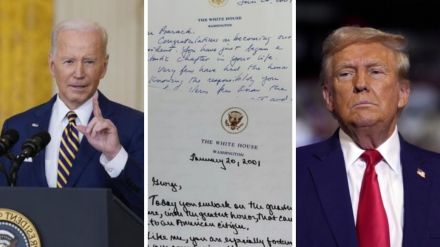 THE WHITE HOUSE
WASHINGTON
Barack,
Congratulations on becoming our
ident. You have just begun a
Chapter in your life.
Very few have had the honor
knowing the responsibility you
Very few know the
THE WHITE HOUSE
WASHINGTON
January 20, 2001
George,
Today you embark on the greatest
with the greatest honor, that can
to an American citizen.
Like me, you are especially fortun